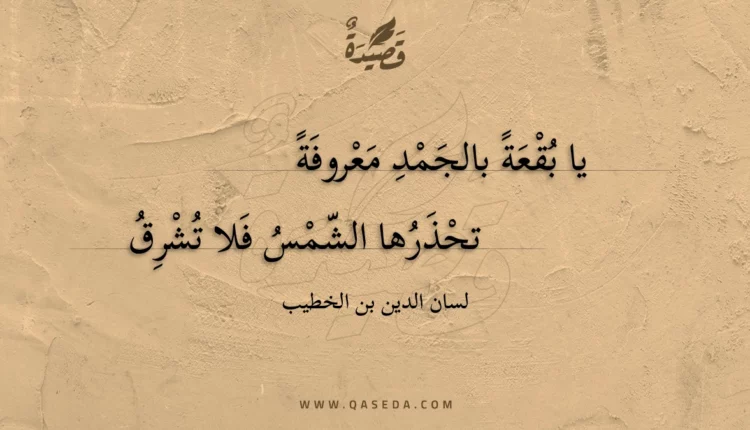 قَصِيدَةٌ
يا بُقْعَةً بالجَمْدِ مَعْروفَةً
تحْذَرُها الشّمْسُ فَلا تُشْرِقُ
لسان الدين بن الخطيب
WWW.QASEDA.COM